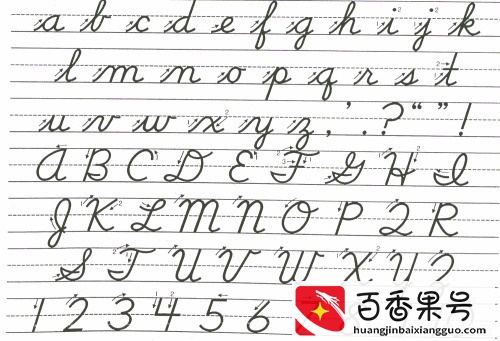 a b c d e f g h i j k
l m n o p q r s t
u v w x y z , ' . ? “ ” !
A B C D E F G H I
J K L M N O P Q R
S T U V W X Y Z
1 2 3 4 5 6
百香果号
huangjinbaixiangguo.com